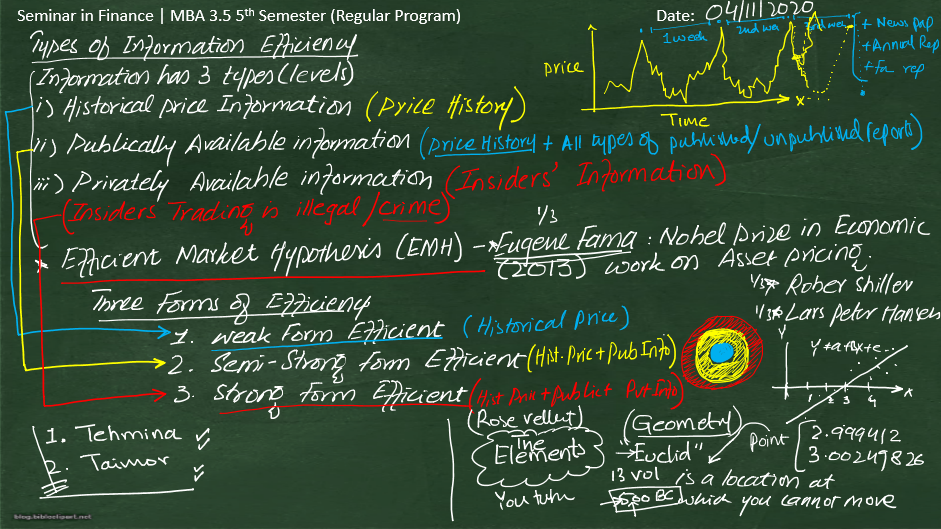 Seminar in Finance | MBA 3.5 5th Semester (Regular Program)
Date: 04/11/2020
Types of Information Efficiency
Information has 3 types (levels)
i) Historical price Information (Price History)
ii) Publically Available information (price History + All types of published/unpublished reports)
iii) Privately Available information (Insiders' Information)
(Insiders Trading is illegal/crime)
* Efficient Market Hypothesis (EMH) - * Eugene Fama : Nobel prize in Economic
1/3
(2013) work on Asset pricing.
1/3 * Rober Shiller
1/3 * Lars Peter Hansen
Three Forms of Efficiency
1. Weak Form Efficient (Historical Price)
2. Semi-Strong form Efficient (Hist. Pric + Pub Info)
3. Strong form Efficient (Hist Pric + Public + Pvt Info)
1. Tehmina
2. Taimor
price
Time
x
1 week
2nd wee
3rd wee
+ News pap
+ Annual Rep
+ Fa rep
Y
Y = a + Bx + e
1 2 3 4
x
(Rose vellut)
The
Elements
You tum
(Geometry)
→ "Euclid"
13 vol
BC
Point
2.999412
3.00249826
is a location at
which you cannot move
blog.bibloclipart.net